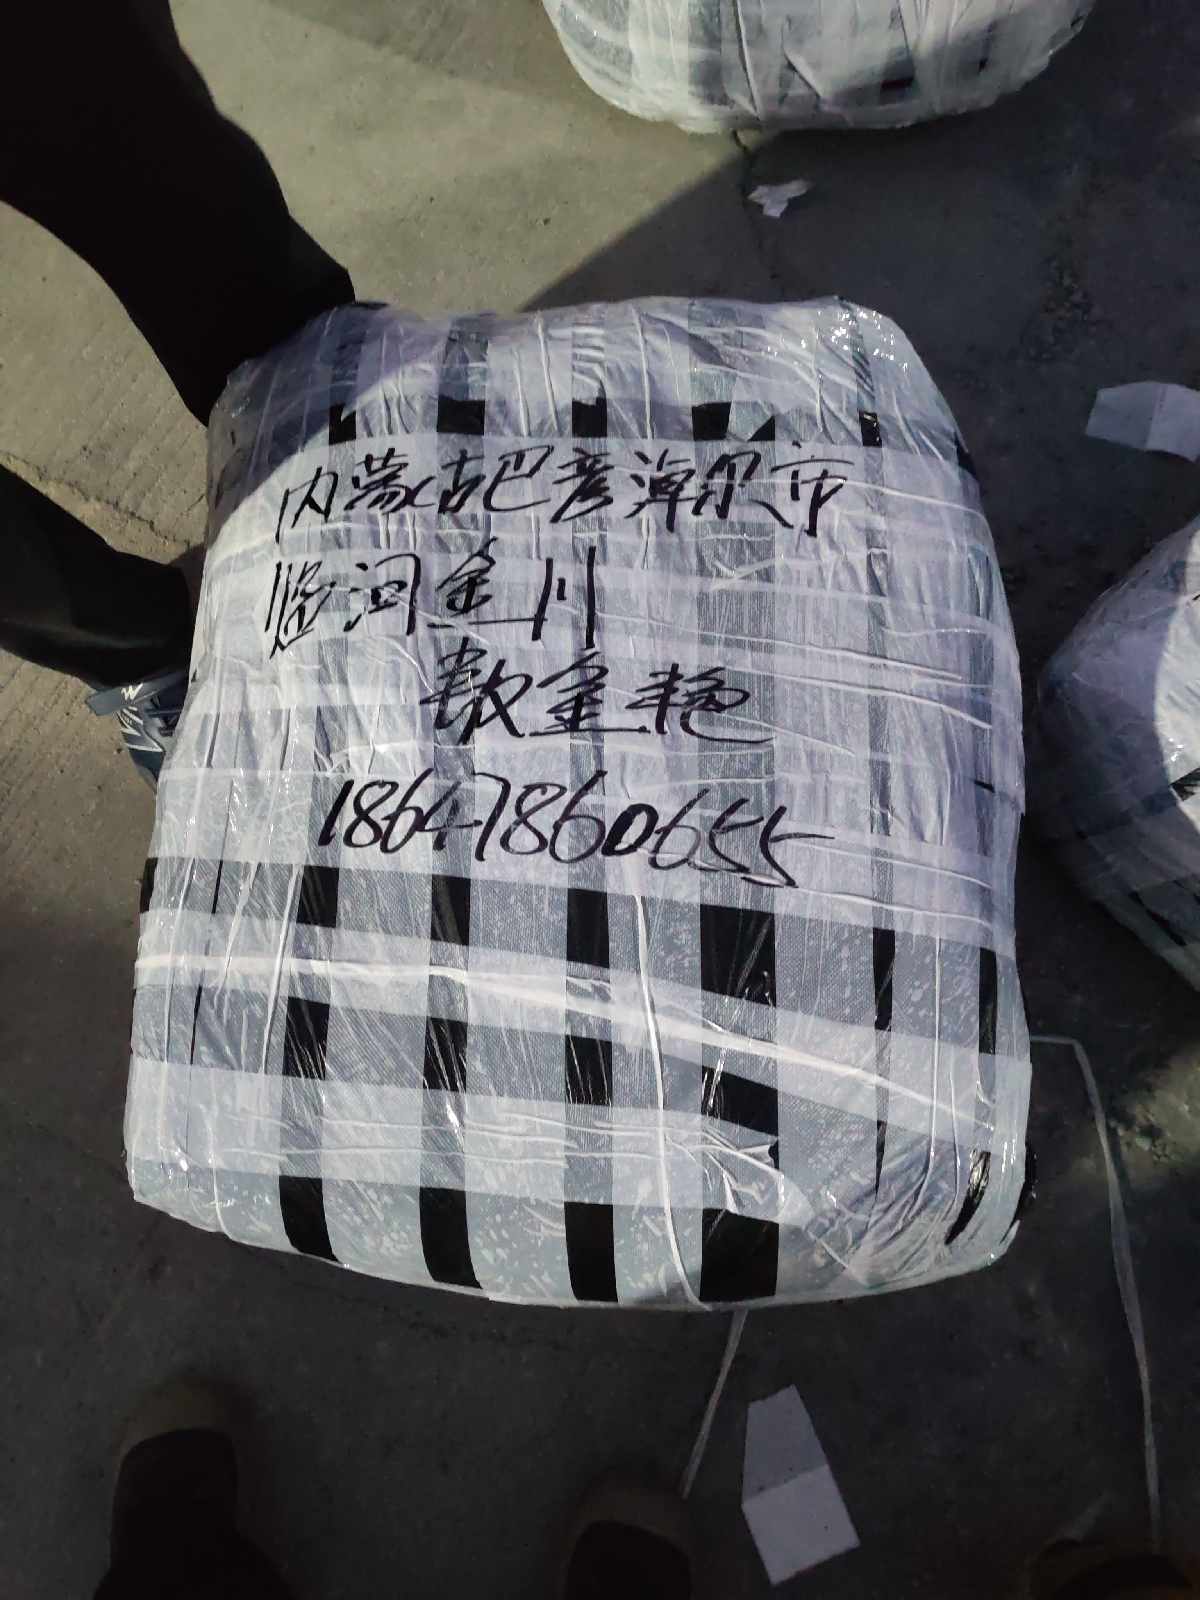 内蒙古巴彦淖尔市
临河金川
敖金艳
18647860655